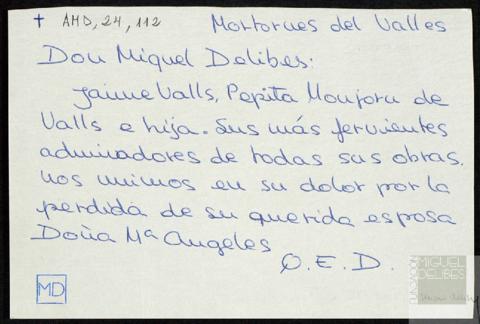 ✝ AMD, 24, 112 Mortornes del Valles
Don Miquel Delibes:
Jaime Valls, Pepita Monforn de
Valls e hija. Sus más fervientes
admiradores de todas sus obras.
nos unimos en su dolor por la
perdida de su querida esposa
Doña Mª Angeles
Q. E. D.
MD
FUNDACIÓN
MIGUEL
DELIBES